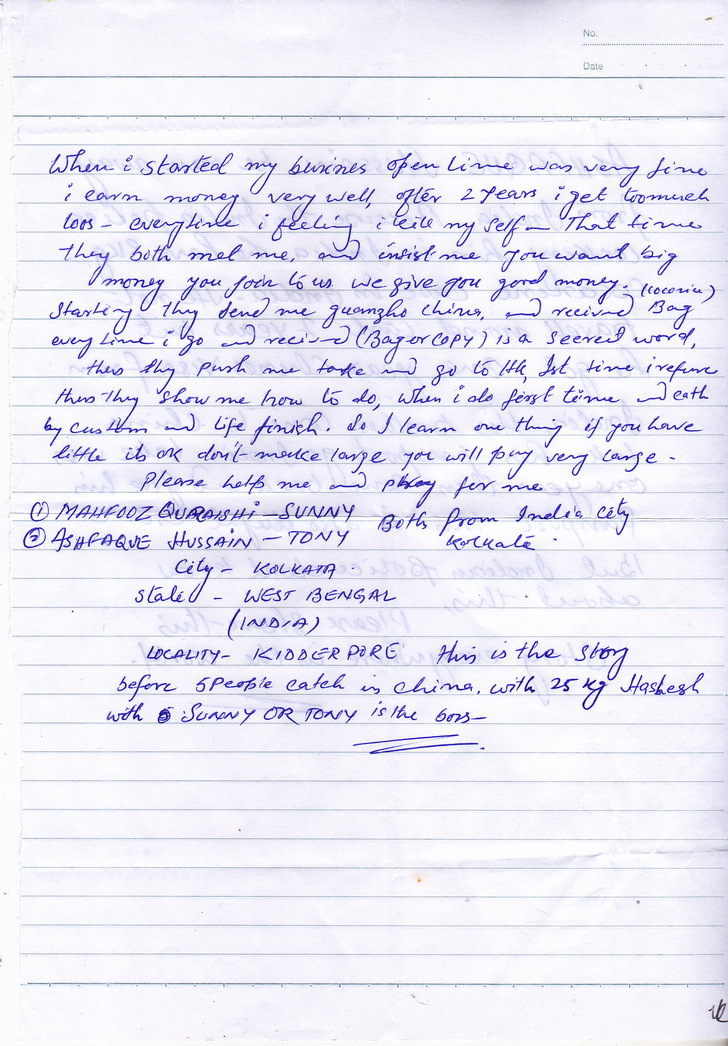 No.
Date
When i started my busines open time was very fine
i earn money very well, after 2 years i get toomuch
loos - everytime i feeling i kill my self - That time
they both met me, and insist me you want big
money you join to us we give you good money. (cocaine)
Starting they send me guangzho china, and recived Bag
every time i go and recived (Bag or COPY) is a secret word,
then they push me take and go to HK, 1st time i refuse
then they show me how to do, when i do first time and cath
by custom and life finish. So I learn one thing if you have
little its ok don't make large you will pay very large -
Please help me and pray for me
① MAHFOOZ QURAISHI - SUNNY
Both from India City
② ASHFAQUE HUSSAIN - TONY
Kolkata.
City - KOLKATA.
State - WEST BENGAL
(INDIA)
LOCALITY - KIDDERPORE this is the story
before 5 People catch in china, with 25 kg Hashesh
with SUNNY OR TONY is the boss -